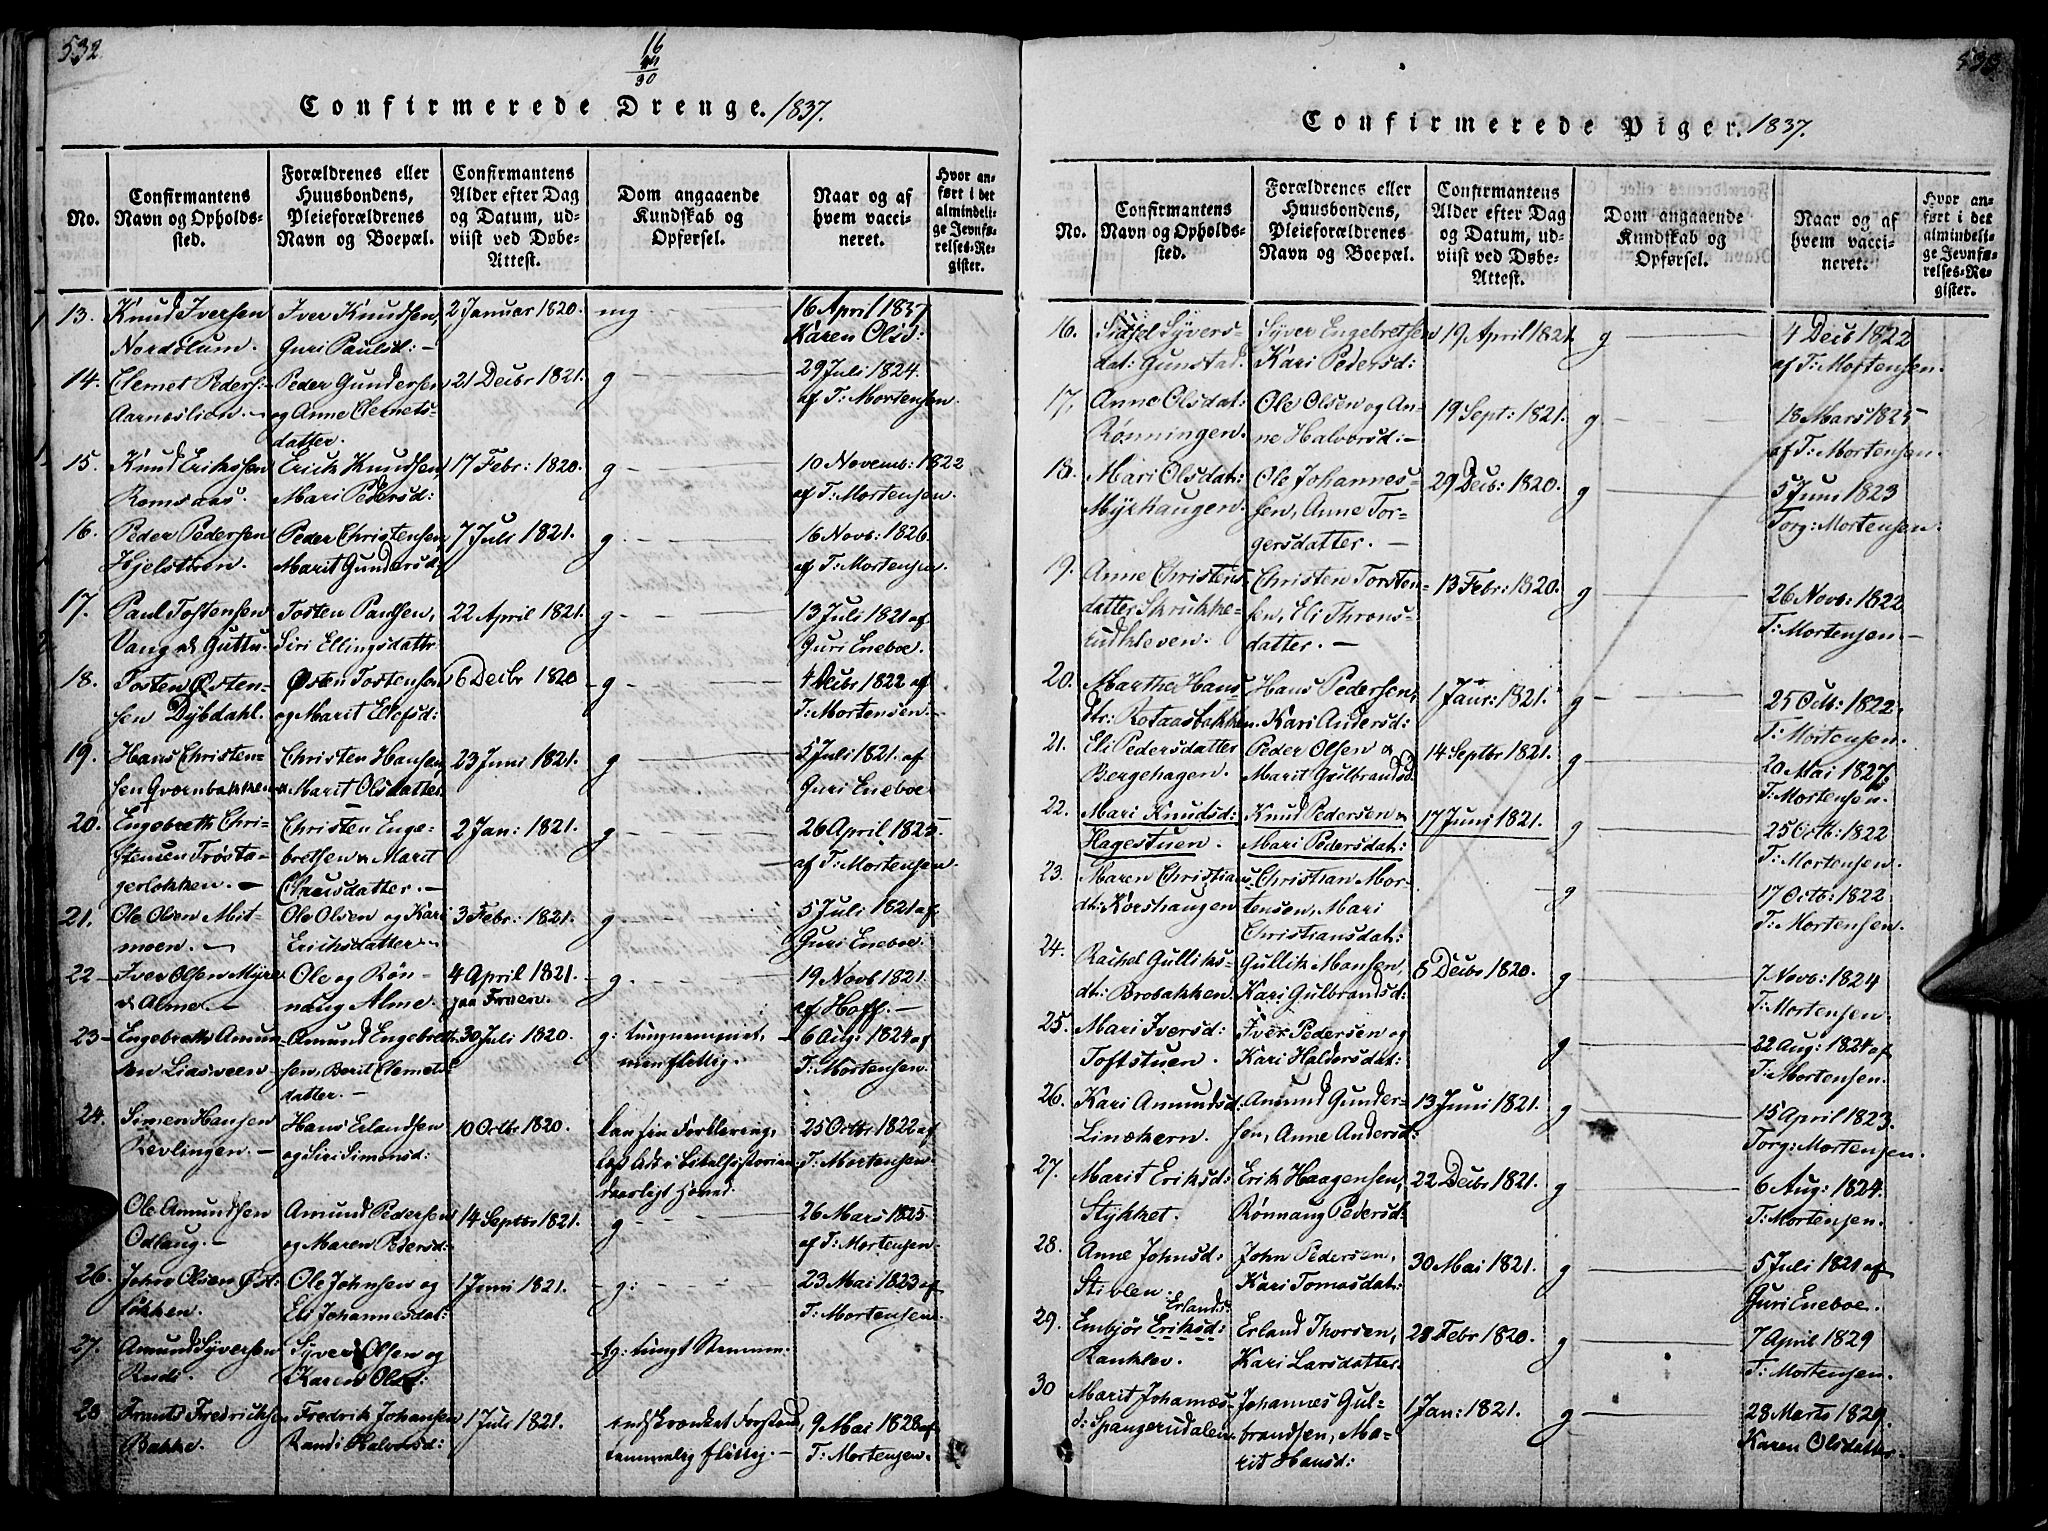 532
16
30
Confirmerede Drenge. 1837.
No.
Confirmantens Navn og Opholdssted.
Forældrenes eller Huusbondens, Pleieforældrenes Navn og Boepæl.
Confirmantens Alder efter Dag og Datum, udviist ved Døbe-Attest.
Dom angaaende Kundskab og Opførsel.
Naar og af hvem vaccineret.
Hvor anført i det almindelige Jevnførelses-Register.
13. Knud Iversen Iver Knudsen, 2 Januar 1820. mg 16 April 1837
Nordølum. Guri Paulsd: Karen Olsd:
14. Clemet Peders- Peder Gundersen 21 Decbr 1821. g 29 Juli 1824.
Aarneslien. og Anne Clemets- af T: Mortensen.
datter.
15. Knud Erikssen Erich Knudsen, 17 Febr: 1820. g 10 Novemb: 1822
Romsaas. Mari Pedersd: af T: Mortensen.
16. Peder Pedersen Peder Christensen, 7 Juli 1821. g. 16 Novb: 1826.
Hjelstuen. Marit Gundersd: af T: Mortensen.
17. Paul Tostensen Tosten Paulsen, 22 April 1821. g 13 Juli 1821 af
Vang Guttu Siri Ellingsdattr Guri Eneboe.
18. Tosten Østen- Østen Tostensen 6 Decbr 1820 g 4 Decbr 1822 af
sen Dybdahl. og Marit Elefsd: T: Mortensen.
19. Hans Christen- Christen Hansen 23 Juni 1821. g 5 Juli 1821. af
sen Qvernbakken Marit Olsdatter Guri Eneboe
20. Engebreth Chri- Christen Enge- 2 Jan: 1821. g 26 April 1825
stensen Frøsta- bretsen Marit af T: Mortensen.
gerløkken. Clausdatter.
21. Ole Olsen Mit- Ole Olsen og Kari 3 Febr: 1821. g. 5 Juli 1821 af
moen. Erichsdatter Guri Eneboe:
22 Iver Olsen Myre Ole og Røn- 4 April 1821. g. 19 Novb 1821.
Alme. naug Alme. paa Froen. af Hoff.
23 Engebreth Amun- Amund Engebret- 30 Juli 1820. g: tungnemmet, 6 Aug: 1824 af
sen Liasveen sen, Berit Clemets- men flittig. T: Mortensen.
datter.
24. Simen Hansen Hans Erlandsen 10 Octbr 1820. kan sin Forklaring, 25 Octbr 1822 af
Kevlingen. og Siri Simensd: T: Mortensen
daarligt Hoved.
Ole Amundsen Amund Pedersen 14 Septbr 1821. g 26 Mars 1825.
Odlaug. og Maren Pedersd: af T: Mortensen
26. John Olsen Øst- Ole Johnsen og 1 Juni 1821. g: 23 Mai 1823 af
løkken. Eli Johannesdat: T: Mortensen.
27. Amund Syversen Syver Olsen og tg: tungt Nemme.
Rudi. Karen Olsd:
28 Frants Fredrichsen Fredrik Johansen 1 Juli 1821. indskrænket Forstand, 9 Mai 1828 af
Bakke. Randi Halvorsd: temmelig flittig. T: Mortensen.
533
Confirmerede Piger. 1837.
No.
Confirmantens Navn og Opholdssted.
Forældrenes eller Huusbondens, Pleieforældrenes Navn og Boepæl.
Confirmantens Alder efter Dag og Datum, udviist ved Døbe-Attest.
Dom angaaende Kundskab og Opførsel.
Naar og af hvem vaccineret.
Hvor anført i det almindelige Jevnførelses-Register.
16. Sidsel Syvers- Syver Engebretsen 19 April 1821. g 4 Decb 1822
dat: Gunstad. Kari Pedersd: af T: Mortensen.
17. Anne Olsdat: Ole Olsen og An- 19 Sept: 1821. g. 18 Mars 1825
Rønningen. ne Halvorsd: af T: Mortensen.
18. Mari Olsdat: Ole Johannes- 29 Decb: 1820. g 5 Juni 1823
Myrhaugen. sen, Anne Tor- Torg: Mortensen.
gersdatter.
19. Anne Christens- Christen Torsten- 13 Febr: 1820. g 26 Novb: 1822
datter Skrukke- sen, Eli Throns- T: Mortensen.
rudkleven. datter.
20. Marthe Hans- Hans Pedersen, 1 Janr: 1821. g 25 Octb: 1822.
dtr: Rotaasbakken. Kari Andersd: T: Mortensen.
21. Eli Pedersdatter Peder Olsen 14 Septbr 1821. g 20 Mai 1827.
Bergehagen. Marit Gulbrandsd: T: Mortensen.
22. Mari Knudsd: Knud Pedersen 17 Juni 1821. g 25 Octb: 1822
Hagestuen. Mari Pedersdat: T: Mortensen.
23. Maren Christians- Christian Mor- g 17 Octb: 1822
dt: Korshaugen tensen, Mari T: Mortensen.
Christiansdat:
24. Rachel Gulliks- Gullik Monsen, 8 Decbr 1820. g 7 Novb: 1824
dt: Brobakken. Kari Gulbrandsd: T: Mortensen.
25. Mari Iversd: Iver Pedersen og g 22 Aug: 1824 af
Toftstuen. Kari Haldorsdat: T: Mortensen.
26. Kari Amundsd: Amund Gunder- 13 Juni 1821. g 15 April 1823.
Linækern. sen, Anne Andersd: Torg: Mortensen.
27. Marit Eriksd: Erik Haagensen, 22 Decbr 1821. g 6 Aug: 1824.
Stykket. Rønnaug Pedersd: T: Mortensen.
28. Anne Johnsd: John Pedersen, 30 Mai 1821. g 5 Juli 1821 af
Stiblen. Kari Tomasdat: Guri Eneboe.
Erlands:
29. Embjør Eriksd: Erland Thorsen, 28 Febr 1820. g 7 April 1829
Ranklev. Kari Larsdatter. T: Mortensen.
30 Marit Johannes- Johannes Gul- 1 Jan: 1821. g 28 Marts 1829.
d: Spangerudalen. brandsen, Ma- Karen Olsdatter.
rit Hansd: